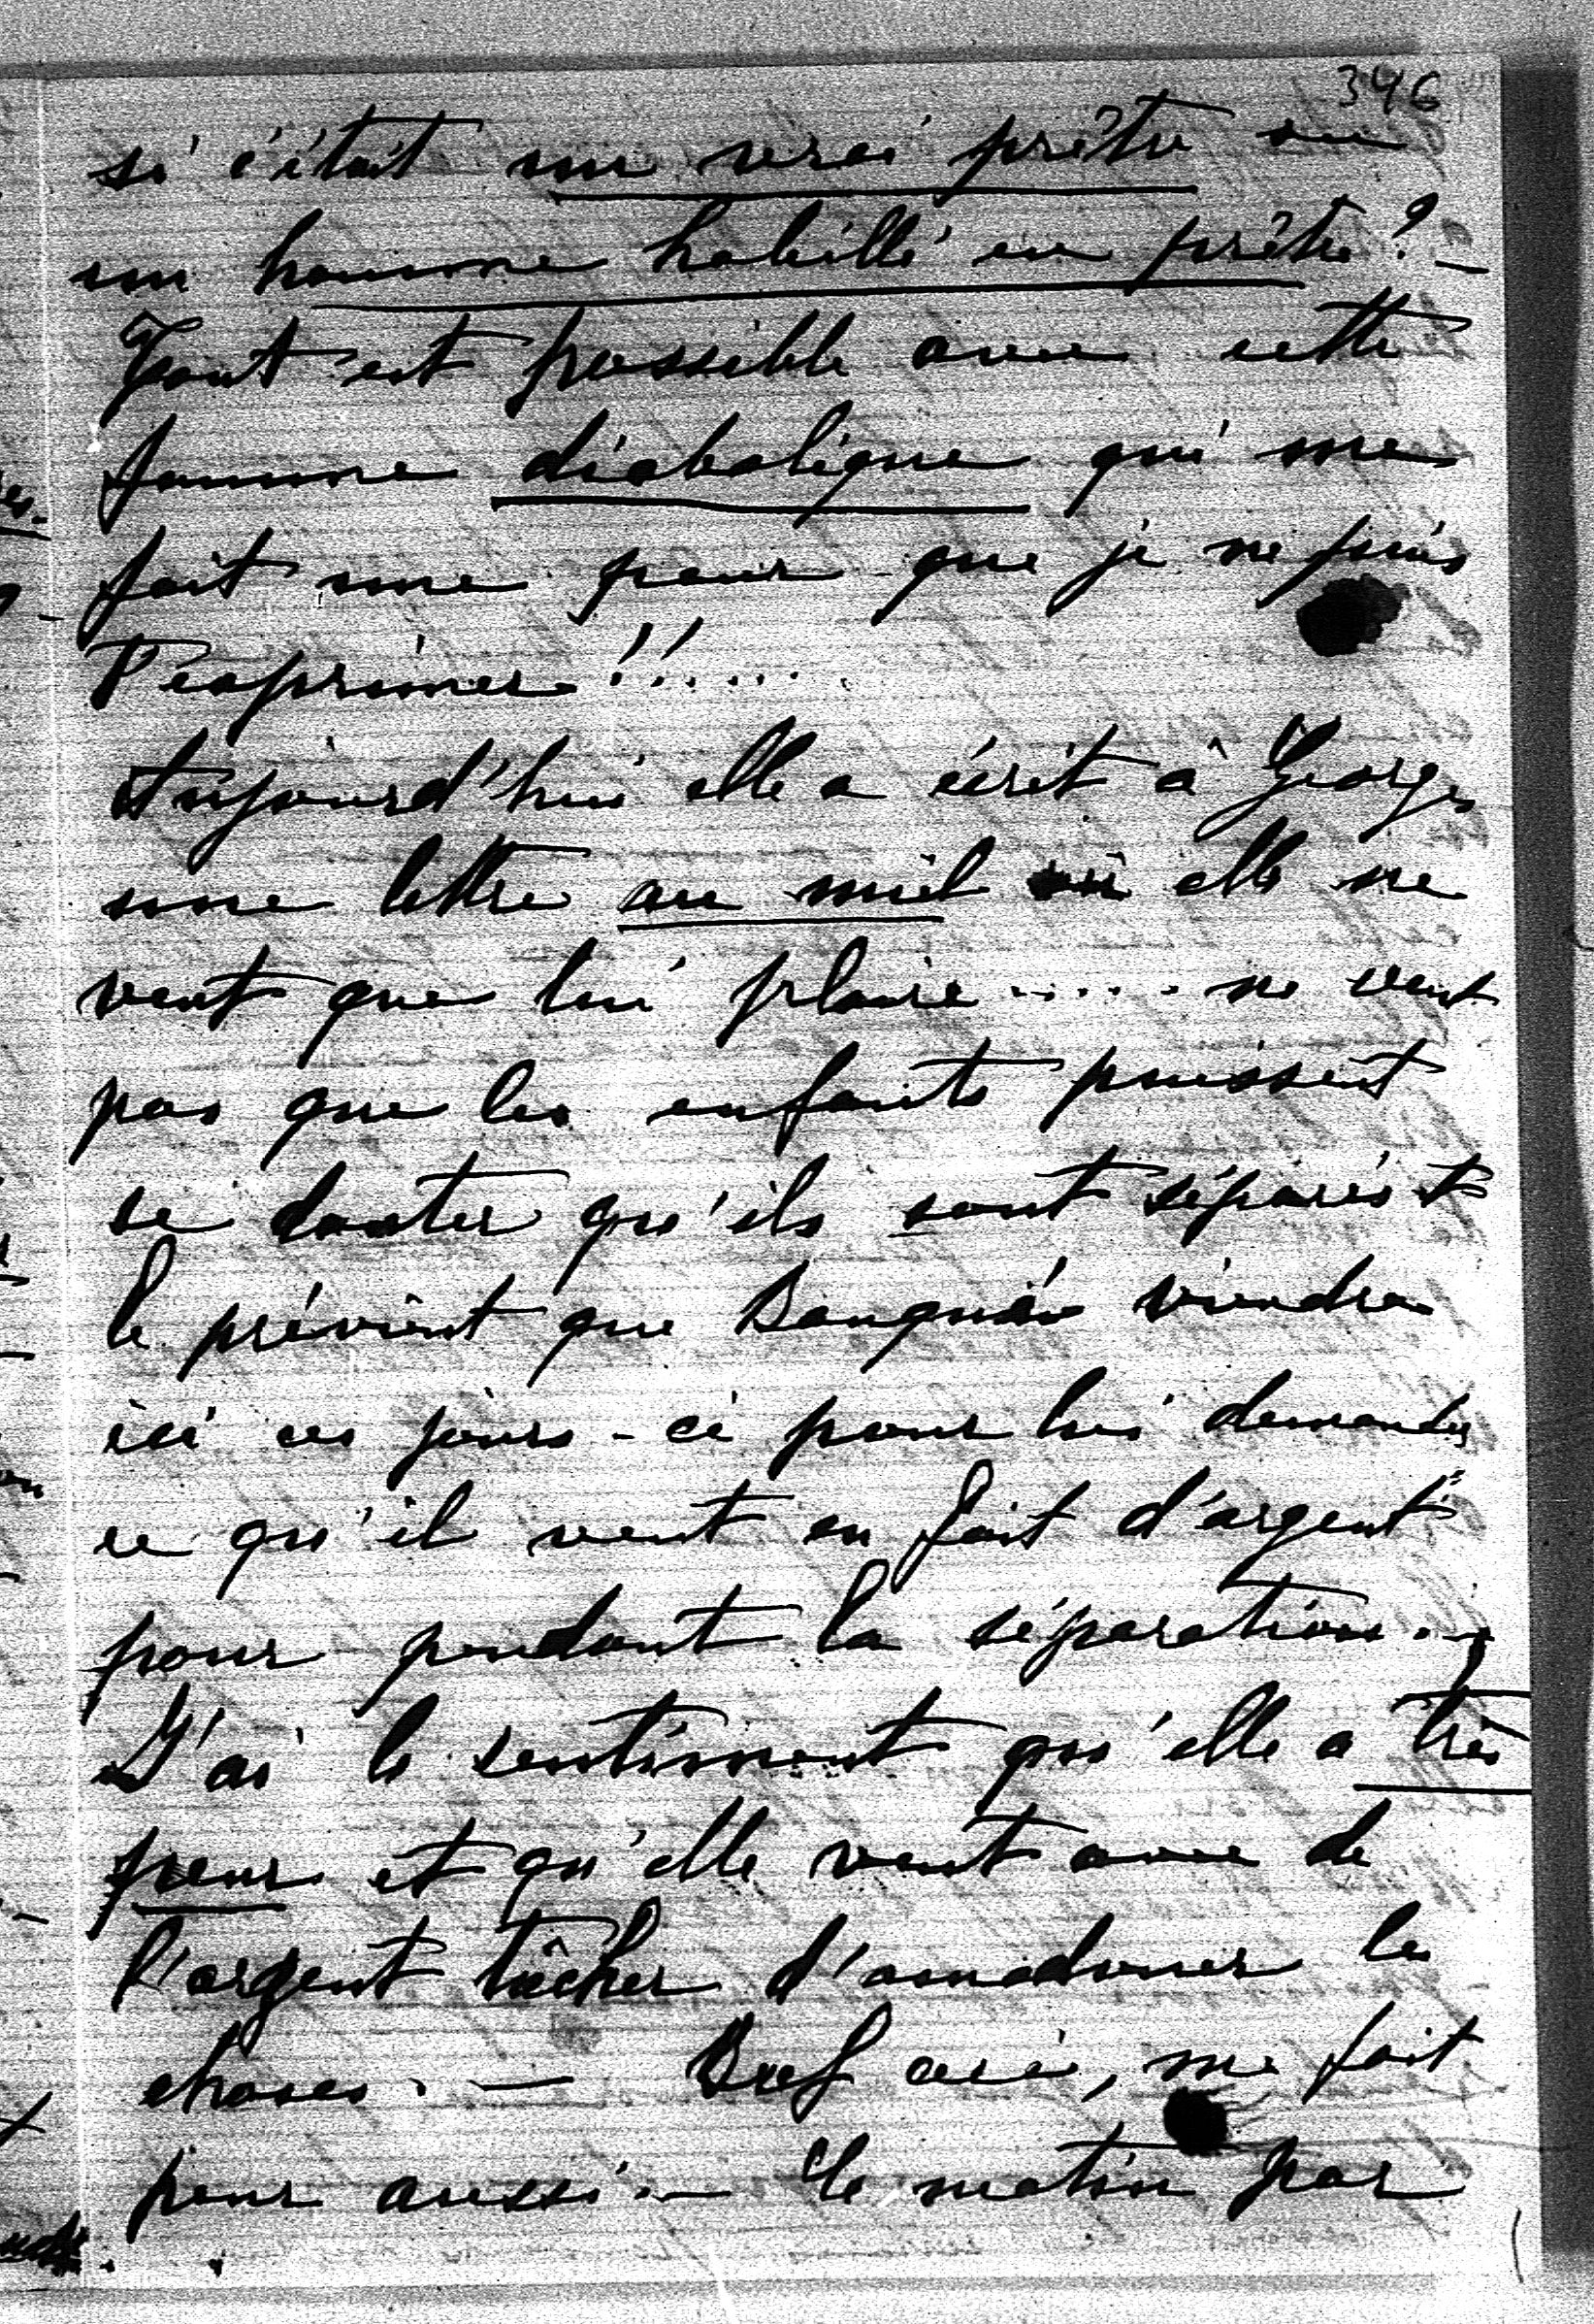 346
si c'était un vrai prêtre ou
un homme habillé en prêtre? –
Tout est possible avec cette
femme diabolique qui me
fait une peur que je ne puis
t'exprimer!!.....
Aujourd'hui elle a écrit à Georges
une lettre au miel où elle ne
veut que lui plaire..... ne veut
pas que les enfants puissent
se douter qu'ils sont séparés et
le prévient que viendra
ici ces jours-ci pour lui demander
ce qu'il veut en fait d'argent
pour pendant la séparation. –
J'ai le sentiment qu'elle a très
peur et qu'elle veut avec de
l'argent tâcher d'amadouer les
choses. – Bref ceci, me fait
peur aussi. – Ce matin par